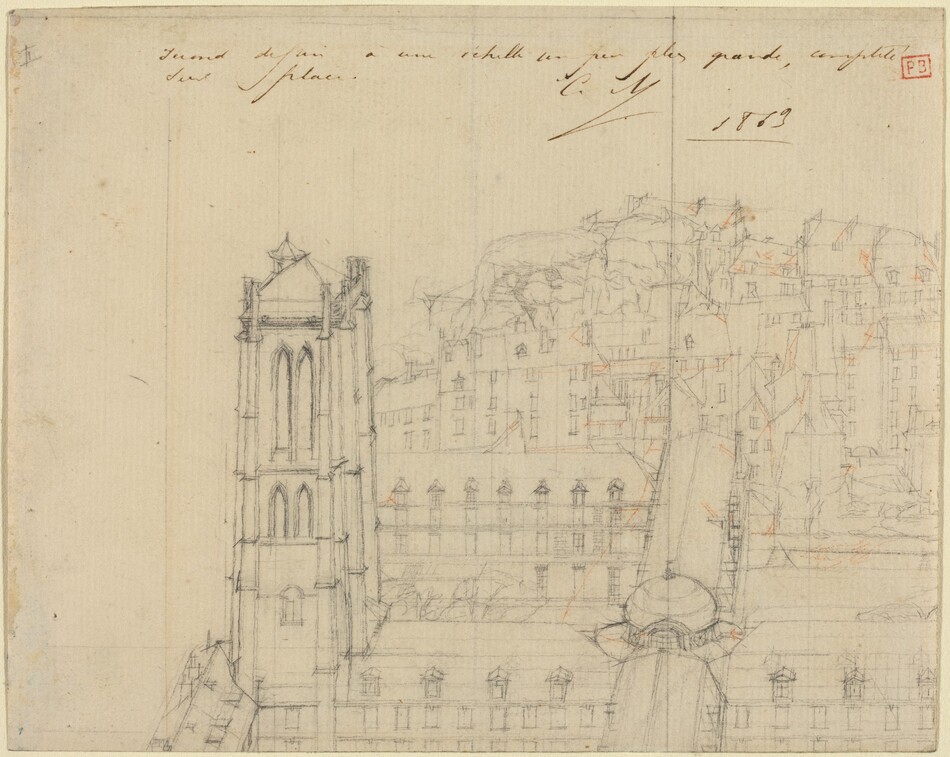 second dessin à une échelle un peu plus grande, complété
sur place.
C. M
1863
PB